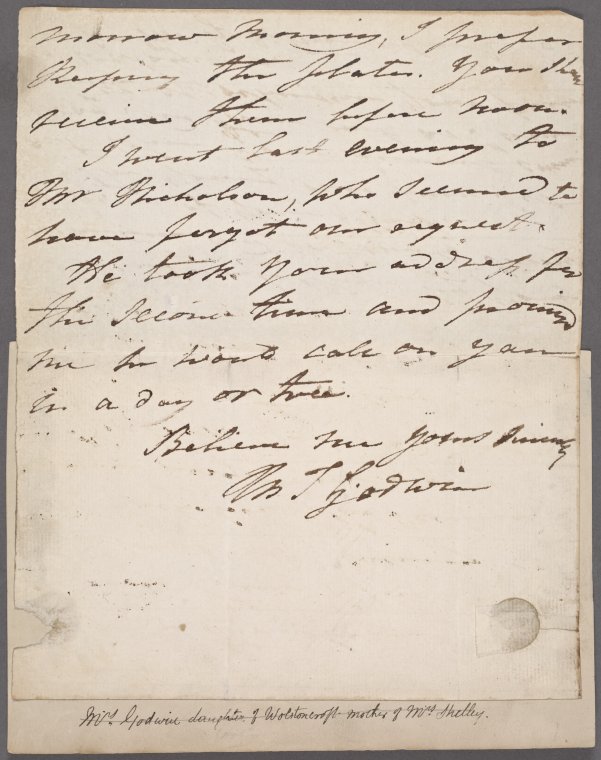 morrow Morning, I prefer
keeping the plates. You shall
receive them before Noon.
I went last evening to
Mr Nicholson, who seemed to
have forgot our request.
He took your address for
the second time and promised
me he would call on you
in a day or two.
Believe me yours sincerely
M J Godwin
Mrs. Godwin daughter of Wolstoncroft mother of Mrs Shelley.